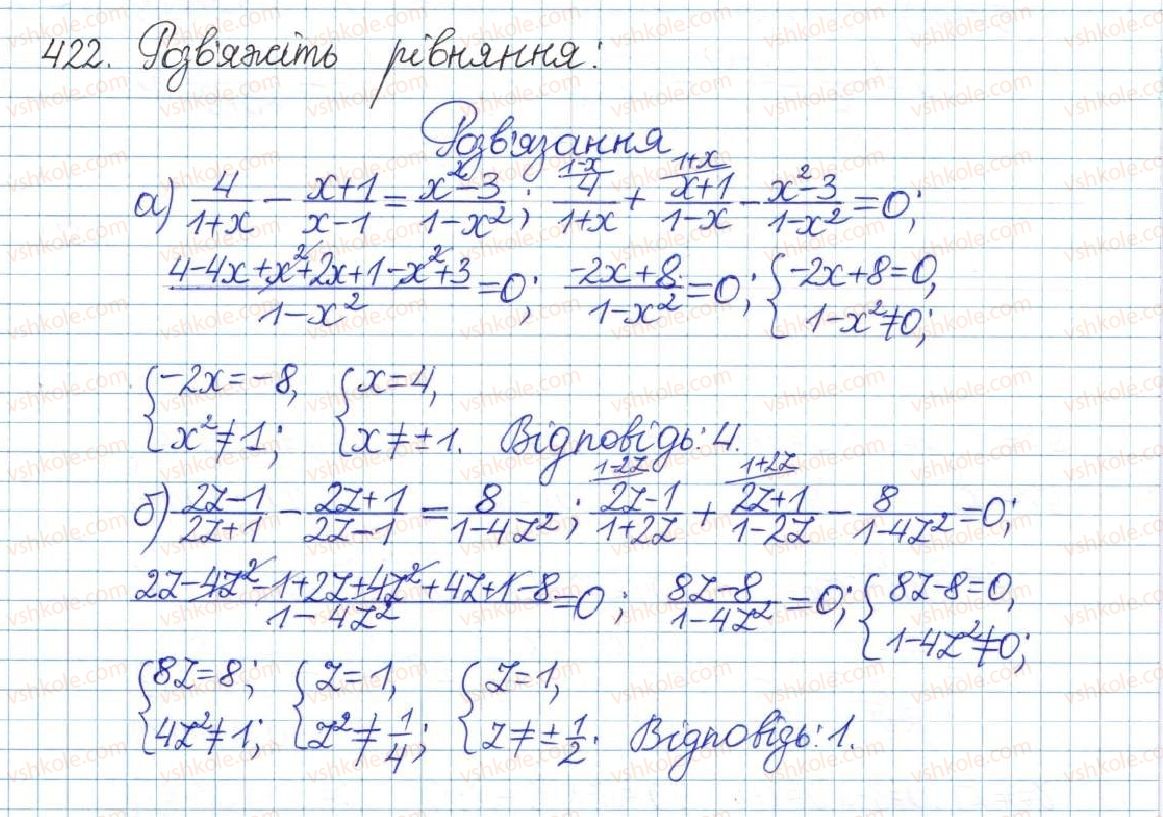 422. Розв'яжіть рівняння:
Розв'язання
а) 4/(1+x) − (x+1)/(x−1) = (x²−3)/(1−x²); 1−x/ 4/(1+x) + 1+x/ (x+1)/(1−x) − (x²−3)/(1−x²) = 0;
(4−4x+x²+2x+1−x²+3)/(1−x²) = 0; (−2x+8)/(1−x²) = 0; { −2x+8=0, 1−x²≠0;
{ −2x=−8, x²≠1; { x=4, x≠±1. Відповідь: 4.
б) (2z−1)/(2z+1) − (2z+1)/(2z−1) = 8/(1−4z²); 1−2z/ (2z−1)/(1+2z) + 1+2z/ (2z+1)/(1−2z) − 8/(1−4z²) = 0;
(2z−4z²−1+2z+4z²+4z+1−8)/(1−4z²) = 0; (8z−8)/(1−4z²) = 0; { 8z−8=0, 1−4z²≠0;
{ 8z=8; 4z²≠1; { z=1, z²≠1/4; { z=1, z≠±1/2. Відповідь: 1.